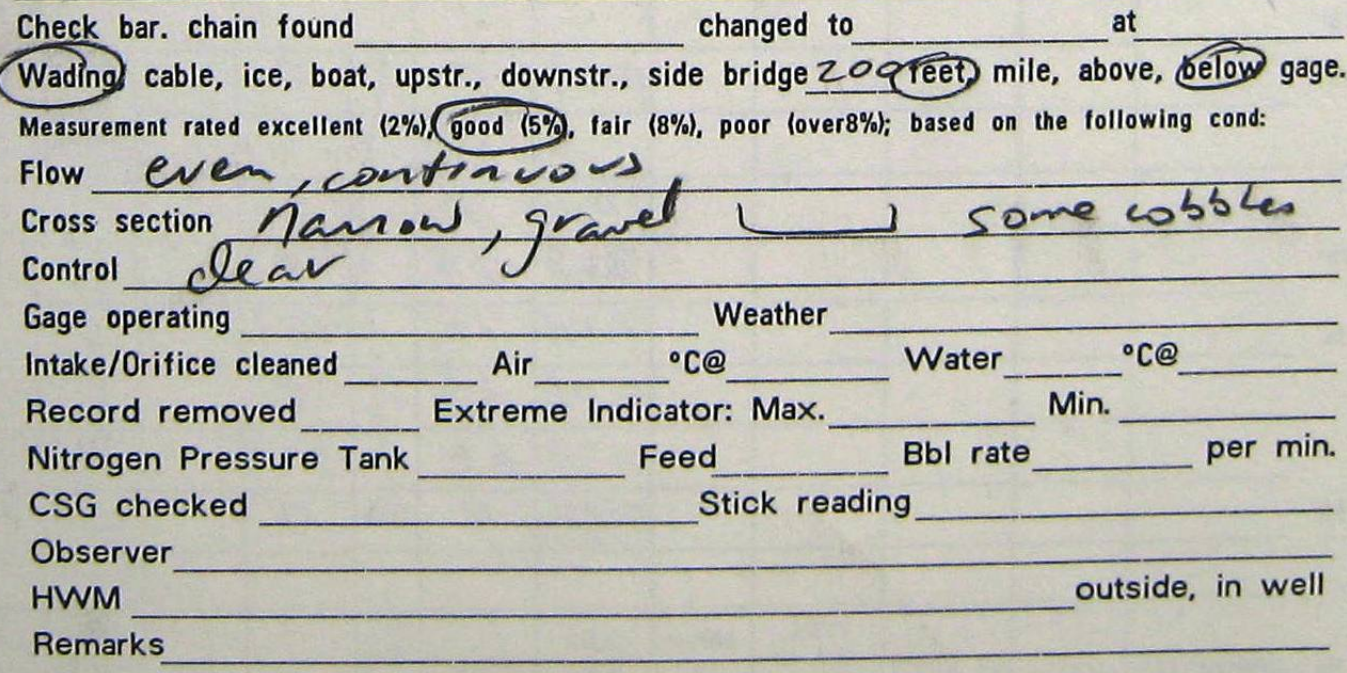 Check bar. chain found changed to at
Wading, cable, ice, boat, upstr., downstr., side bridge 200 feet, mile, above, below gage.
Measurement rated excellent (2%), good (5%), fair (8%), poor (over8%); based on the following cond:
Flow even, continuous
Cross section narrow, gravel some cobbles
Control clear
Gage operating Weather
Intake/Orifice cleaned Air °C@ Water °C@
Record removed Extreme Indicator: Max. Min.
Nitrogen Pressure Tank Feed Bbl rate per min.
CSG checked Stick reading
Observer
HWM outside, in well
Remarks